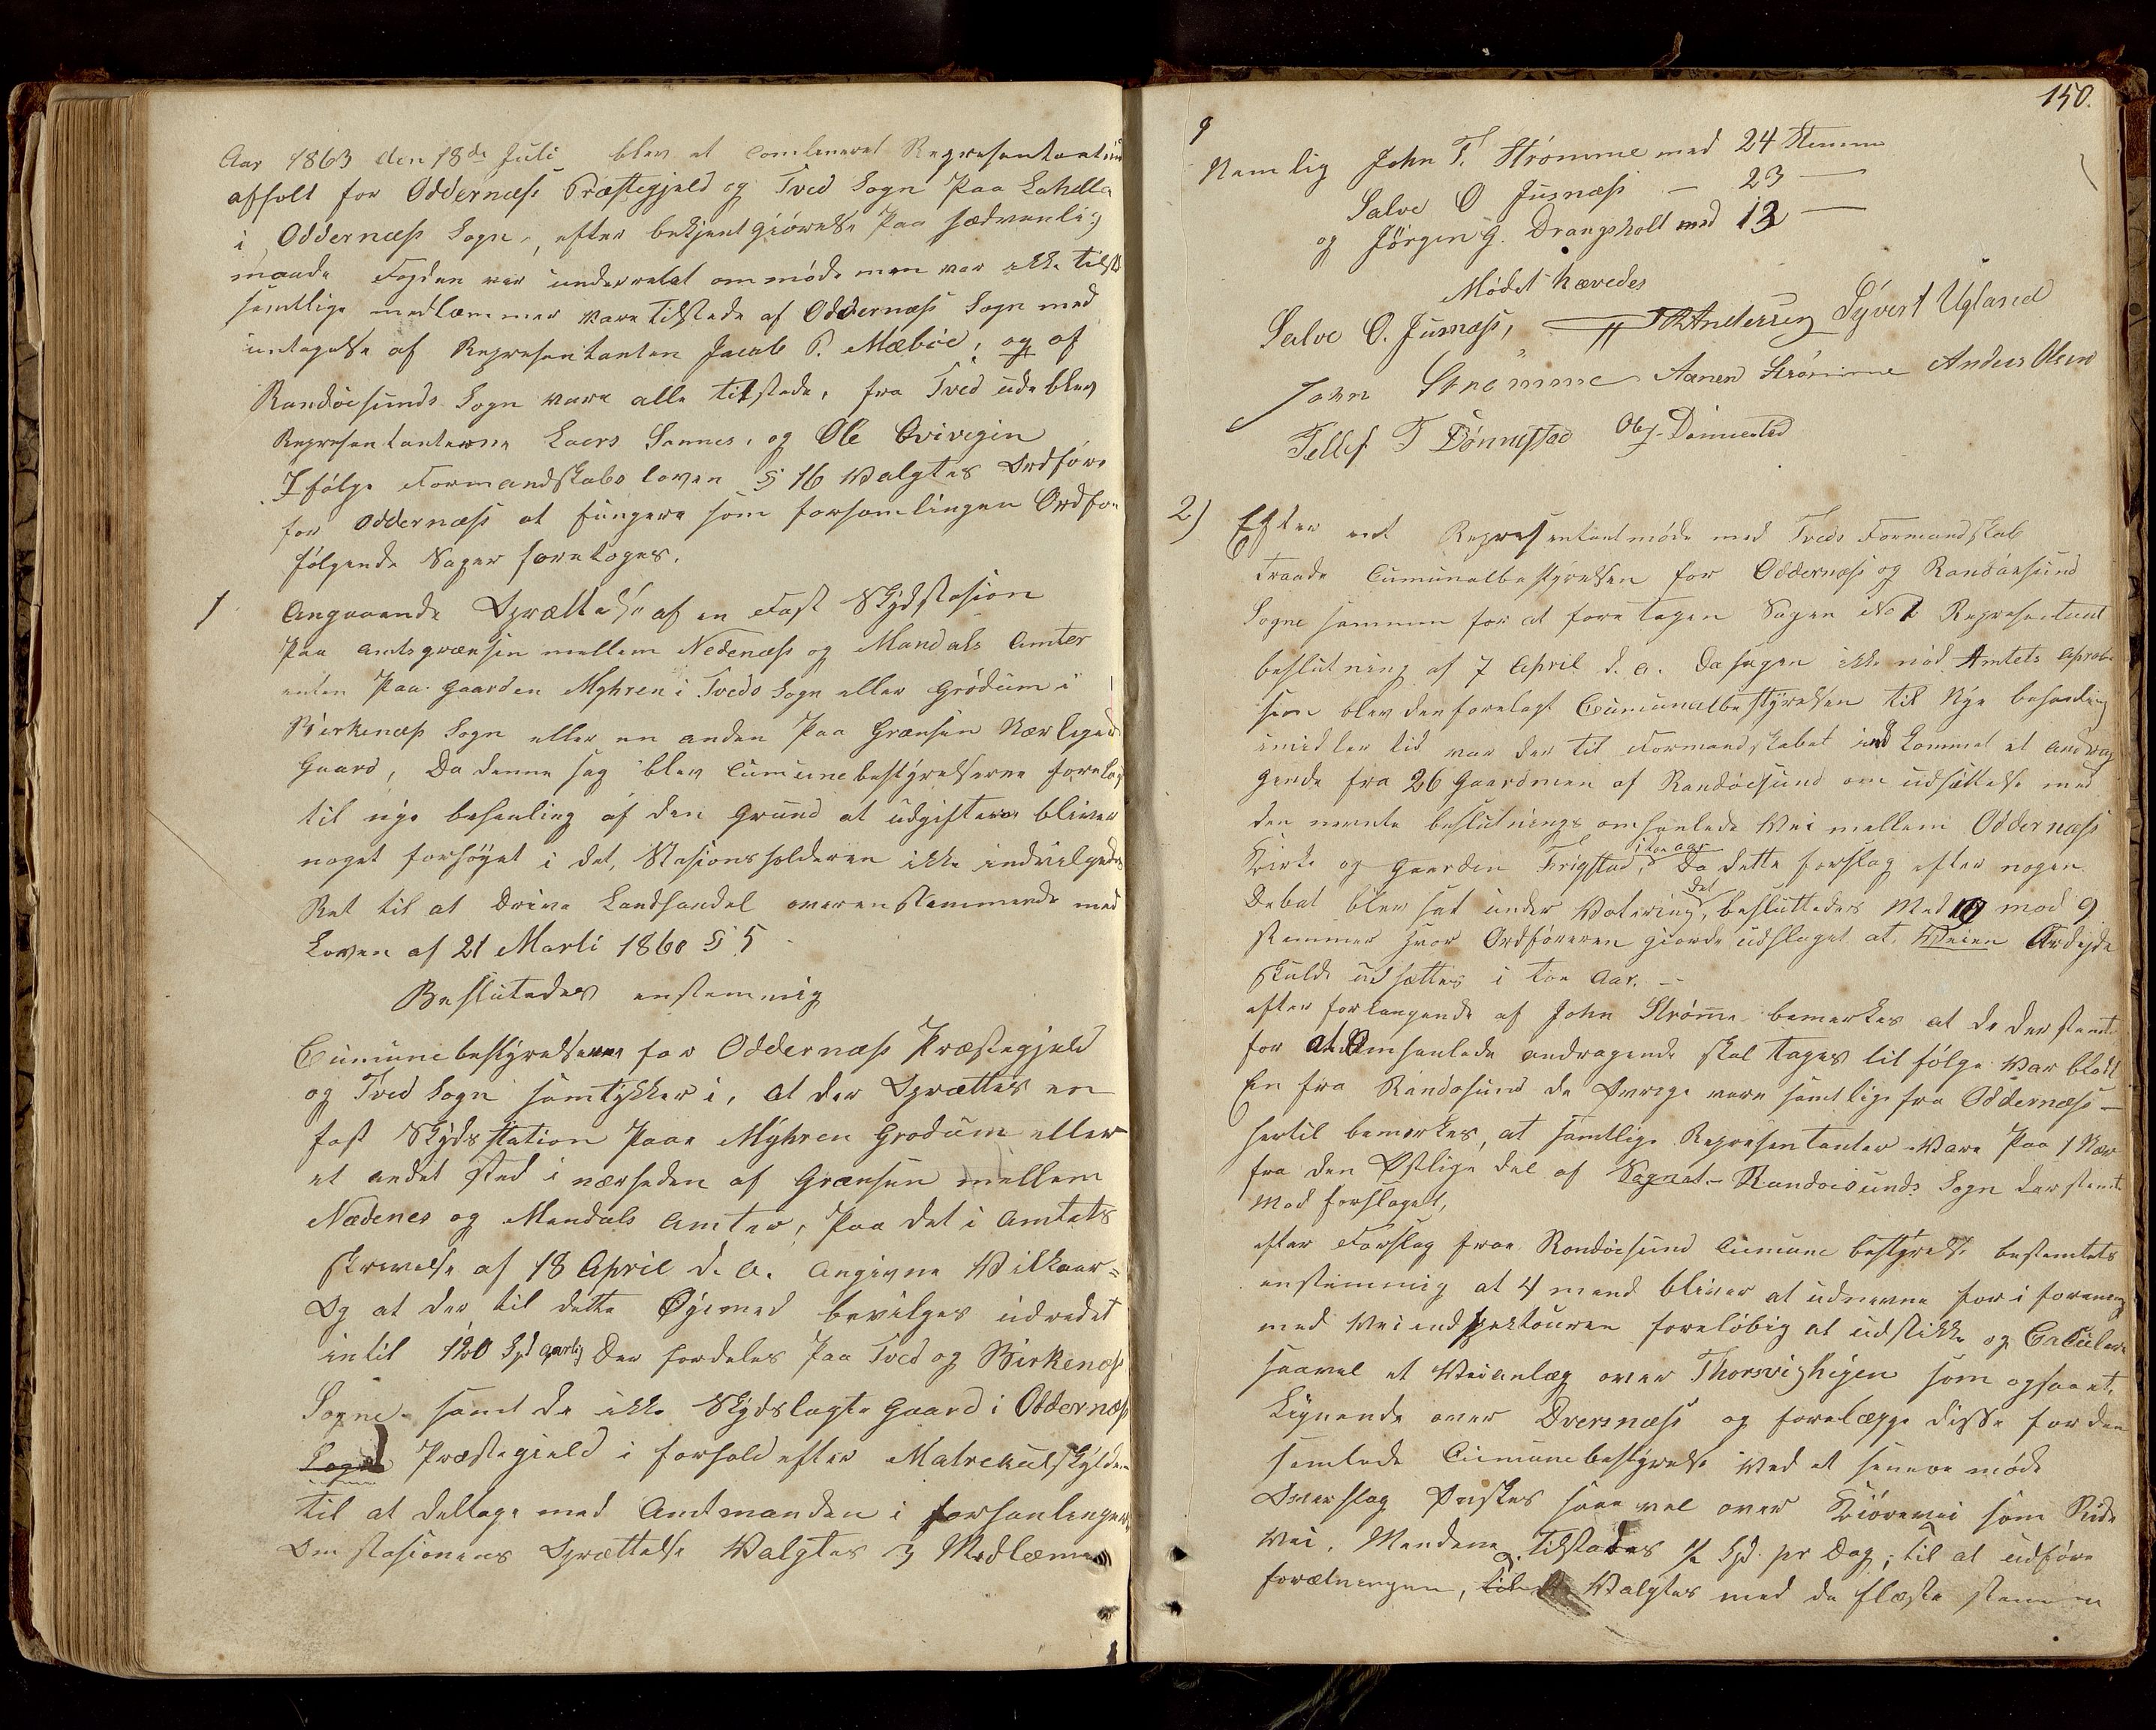 Aar 1863 den 18de Juli blev et combineret Representant
afholt for Oddernæss Præstegjeld og Tved Sogn paa Lahella
i Oddernæss Sogn, efter bekjentgiörelse paa sædvanlig
maade Fogden var underrettet om möde men var ikke tilst
samtlige medlemmer vare tilstede af Oddernæss Sogn med
untagelse af Representanten Jacob P. Mæböe, og af
Randöesunds Sogn vare alle tilstede, fra Tved udeblev
Representanterne Laers Sannes, og Ole Qvivigin
I fölge Formandskabsloven § 16 valgtes Ordföre
for Oddernæss at fungere som forsamlingen Ordför
fölgende Sager foretoges.
1 Angaaende Oprættelse af en Fast Skydsstasion
paa amtsgrænsen mellem Nedenæss og Mandals Amter
enten paa gaarden Myhren i Tveds Sogn eller Grödum i
Birkenæss Sogn eller en anden paa Grænsen Nærligende
Gaard, Da denne sag blev Cumunebestyrelserne forelag
til nye behanling af den Grund at udgifterne bliver
noget forhöyet i det, Stasionsholderen ikke indvilgedes
Ret til at Drive Landhandel overenstemmende med
Loven af 21 Marti 1860 § 5
Beslutedes enstemmig
Cumunebestyrelserne for Oddernæss Præstegjeld
og Tved Sogn samtykker i, at der Oprættes en
fast Skydsstation paa Myhren Grodum eller
et andet sted i nærheden af Grænsen mellem
Nædenes og Mandals Amter, paa det i Amtets
skrivelse af 18 April d. A. Angivne Vilkaar=
Og at der til dette Øyemed bevilges udredet
intil 120 Spd aarlig Der fordeles paa Tved og Birkenæss
Sogne samt de ikke Skydslagte Gaard i Oddernæss
Sogn Præstegield i forhold efter Matrekulskylden
til at deltage med Amtmanden i forhanlingen
Om stasionens Oprættelse Valgtes 3 Medlemer
150.
Nemlig John T. Strömme med 24 Stemme
Salve O Jusnæss — 23 —
og Jörgen G. Drangsholt med 12 —
Mödet hævedes
Salve O. Jusnæss, Andersen Syvert Ugland
John Strömme Aanen Strömme Anders Olsen
Tellef T Dönnestad Ol. J. Dönnestad
2) Efter endt Representantmöde med Tveds Formandskab
traade Cumunalbestyrelsen for Oddernæss og Randöesund
Sogne sammen for at foretagen Sagen No 1 Representant
beslutning af 7 April d. a. Da sagen ikke nöd Amtets Aproba
sion blev den forelagt Cumunalbestyrelsen til Nye behanling
imidlertid var der til Formandskabet indkommet et andrag
gende fra 26 Gaardmen af Randöesund om udsættelse med
den nevnte beslutnings omhanlede Vei mellem Oddernæss
Kirke og Gaarden Frigstad, i toe aar Da dette forslag efter nogen
Debat blev sat under Votering, det besluttedes Med 10 mod 9
stemmer hvor Ordföreren giorde udslaget at Veien Arbejde
skulde udsættes i toe Aar. —
efter forlangende af John Strömme bemerkes at de der stemte
for at Omhanlede andragende skal tages til fölge var blodt
En fra Randösund de Övrige vare samtlige fra Oddernæss —
hertil bemerkes, at samtlige Representanter vare paa 1 Nær
fra den Östlige del af Sognet — Randoesunds Sogn der stemte
mod forslaget,
efter Forslag fraa Randöesund Cumune bestyrelse bestemtes
enstemmig at 4 mend bliver at udnevne for i forening
med Veiendspektouren forelöbig at udstikke og Calculere
saavel et Veianlæg over Thorsvigheigen som ogsaa et,
Lignende over Dversnæss og forelægge disse for den
samlede Cumunebestyrelse ved et senere möde
Overslag Önskes saa vel over Kiörevei som Ride
Vei. Mendene Tilstaaes ½ Spd. pr Dag, til at udföre
forætningen, Valgtes med de flæste stemmer